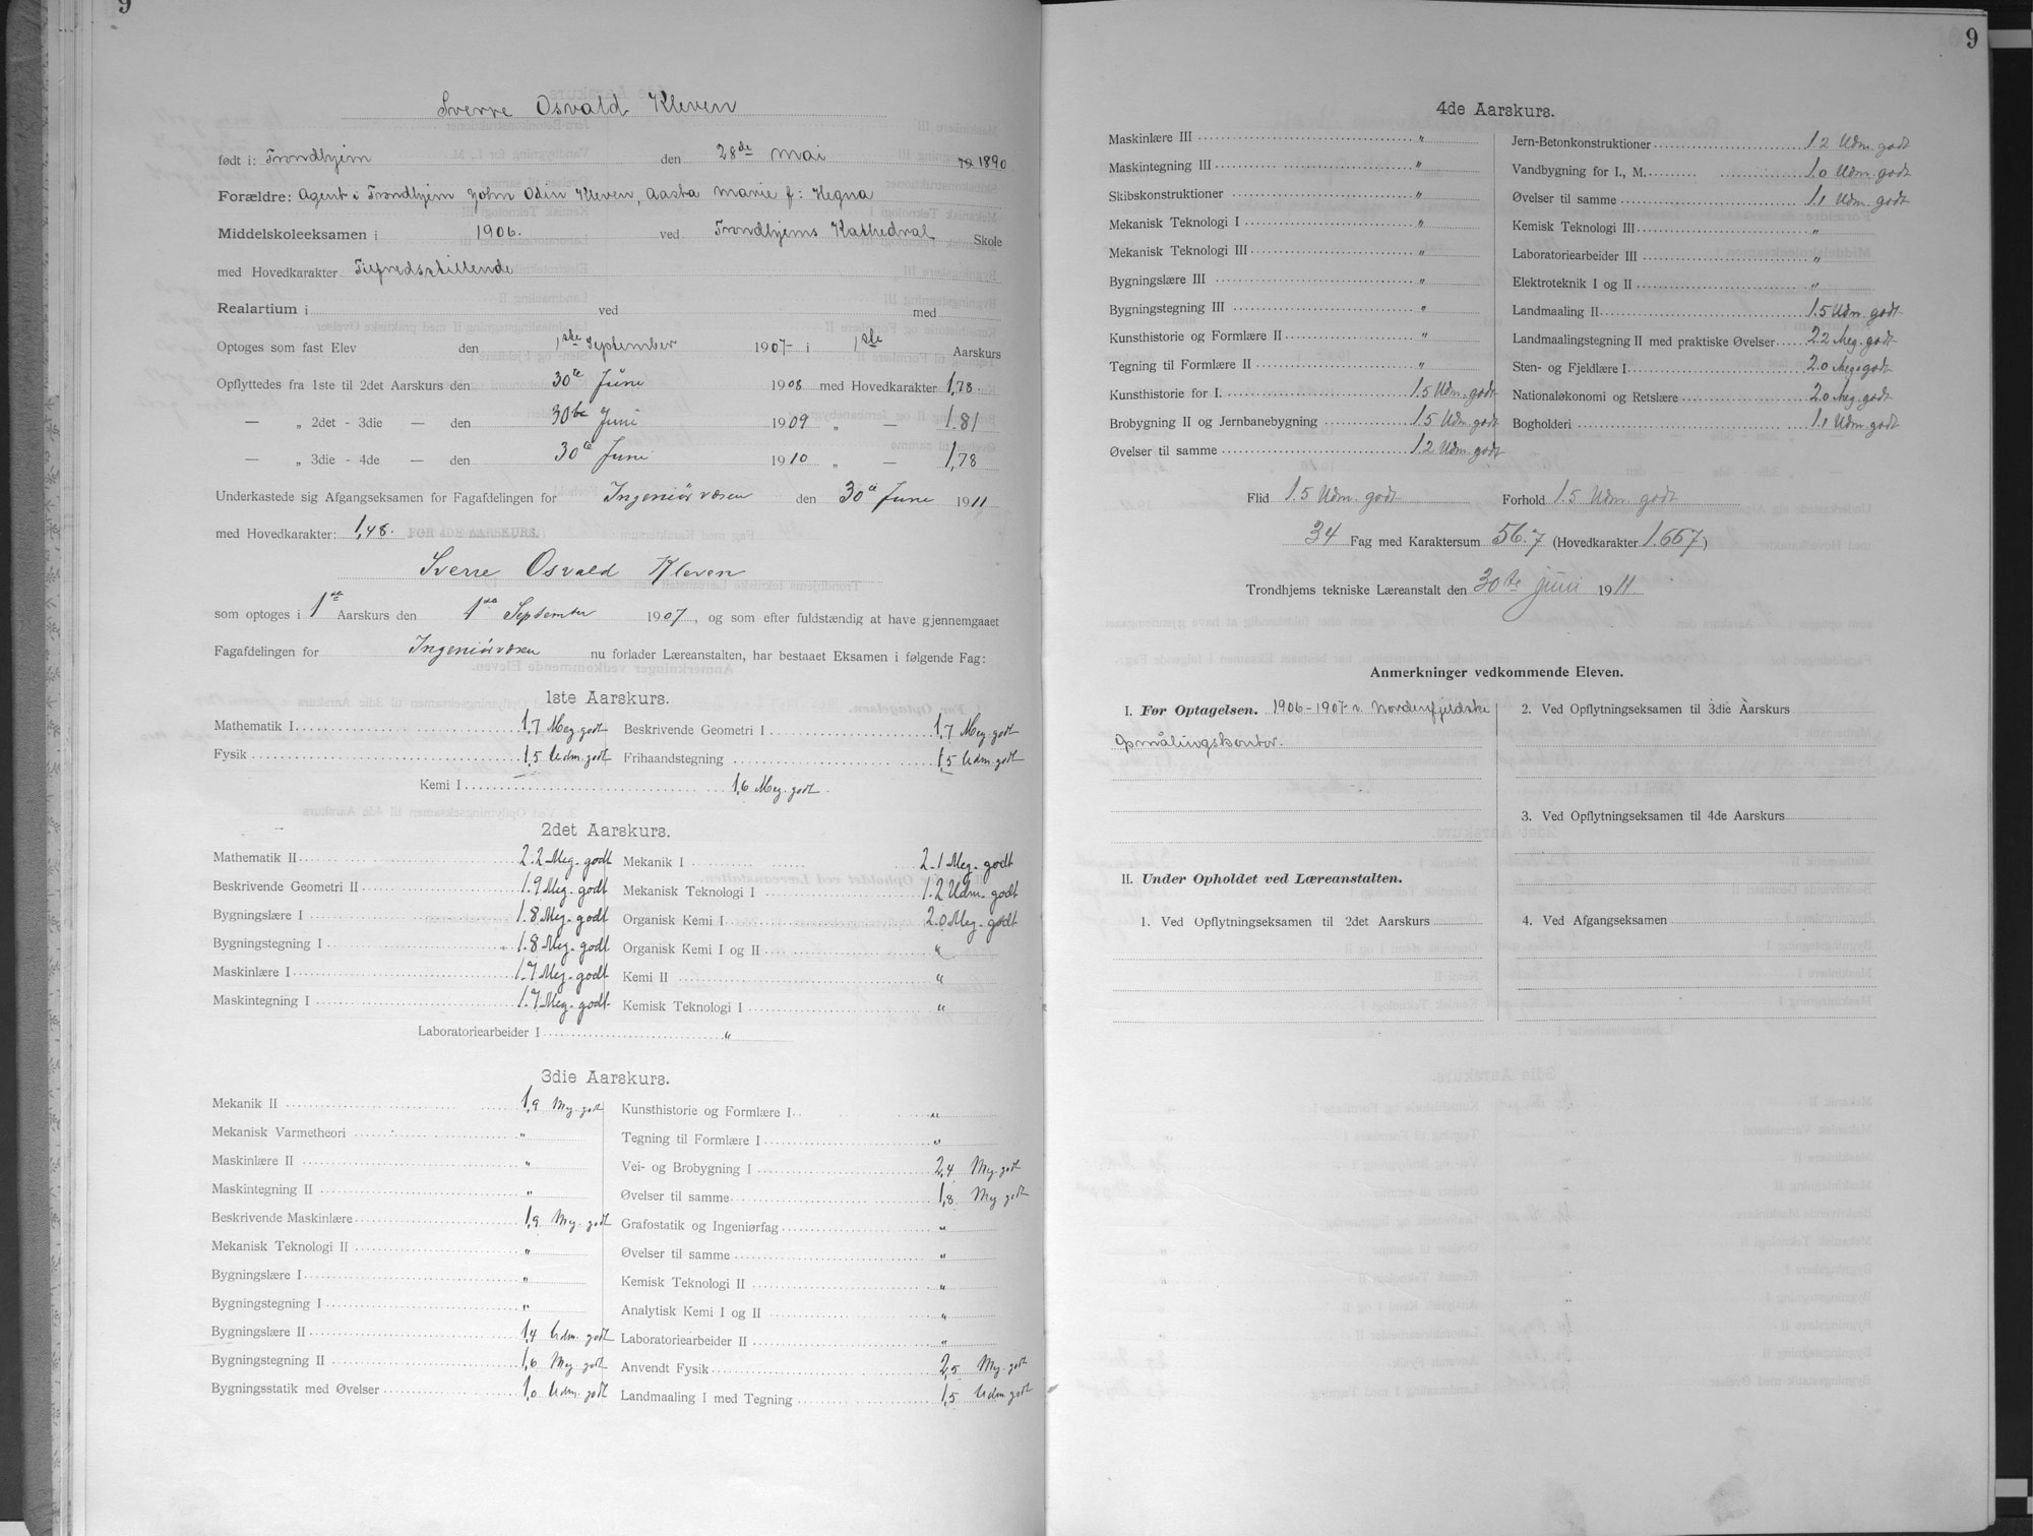 9
Sverre Osvald Kleven
født i: Trondhjem den 28de mai 1890
Forældre: Agent i Trondhjem John Odin Kleven, Aasta Marie f: Hegna
Middelskoleeksamen i 1906. ved Trondhjems Kathedral Skole
med Hovedkarakter Tilfredsstillende
Realartium i ved med
Optoges som fast Elev den 1ste September 1907 i 1ste Aarskurs
Opflyttedes fra 1ste til 2det Aarskurs den 30te Juni 1908 med Hovedkarakter 1,78
— „ 2det - 3die — den 30te Juni 1909 „ — 1.81
— „ 3die - 4de — den 30te Juni 1910 „ — 1,78
Underkastede sig Afgangseksamen for Fagafdelingen for Ingeniörvæsen den 30te Juni 1911
med Hovedkarakter: 1,48. FOR 4DE AARSKURS.
Sverre Osvald Kleven
som optoges i 1ste Aarskurs den 1ste September 1907, og som efter fuldstændig at have gjennemgaaet
Fagafdelingen for Ingeniörvæsen nu forlader Læreanstalten, har bestaaet Eksamen i følgende Fag:
1ste Aarskurs.
Mathematik I 1,7 Meg. godt Beskrivende Geometri I 1,7 Meg. godt
Fysik 1,5 Udm. godt Frihaandstegning 1,5 Udm. godt
Kemi I 1,6 Meg. godt.
2det Aarskurs.
Mathematik II 2.2 Meg. godt Mekanik I 2.1 Meg. godt
Beskrivende Geometri II 1.9 Meg. godt Mekanisk Teknologi I 1.2 Udm. godt
Bygningslære I 1.8 Meg. godt Organisk Kemi I 2.0 Meg. godt
Bygningstegning I 1.8 Meg. godt Organisk Kemi I og II "
Maskinlære I 1.7 Meg. godt Kemi II "
Maskintegning I 1.7 Meg. godt. Kemisk Teknologi I "
Laboratoriearbeider I "
3die Aarskurs.
Mekanik II 1,9 Mg. godt Kunsthistorie og Formlære I "
Mekanisk Varmetheori " Tegning til Formlære I "
Maskinlære II " Vei- og Brobygning I 2,4 Mg. godt
Maskintegning II " Øvelser til samme 1,8 Mg godt
Beskrivende Maskinlære 1,9 Mg. godt Grafostatik og Ingeniørfag "
Mekanisk Teknologi II " Øvelser til samme "
Bygningslære I " Kemisk Teknologi II "
Bygningstegning I " Analytisk Kemi I og II "
Bygningslære II 1,4 Udm. godt Laboratoriearbeider II "
Bygningstegning II 1,6 Mg godt Anvendt Fysik 2,5 Mg. godt
Bygningsstatik med Øvelser 1,0 Udm. godt Landmaaling I med Tegning 1,5 Udm godt
9
4de Aarskurs.
Maskinlære III " Jern-Betonkonstruktioner 1.2 Udm. godt
Maskintegning III " Vandbygning for I., M. 1.0 Udm. godt
Skibskonstruktioner " Øvelser til samme 1.1 Udm. godt
Mekanisk Teknologi I " Kemisk Teknologi III "
Mekanisk Teknologi III " Laboratoriearbeider III "
Bygningslære III " Elektroteknik I og II "
Bygningstegning III " Landmaaling II 1.5 Udm. godt
Kunsthistorie og Formlære II " Landmaalingstegning II med praktiske Øvelser 2.2 Meg. godt
Tegning til Formlære II " Sten- og Fjeldlære I 2.0 Meg. godt
Kunsthistorie for I. 1.5 Udm. godt Nationaløkonomi og Retslære 2.0 Meg. godt
Brobygning II og Jernbanebygning 1.5 Udm. godt Bogholderi 1.1 Udm. godt
Øvelser til samme 1.2 Udm. godt
Flid 1.5 Udm. godt Forhold 1.5 Udm. godt
34 Fag med Karaktersum 56.7 (Hovedkarakter 1.667)
Trondhjems tekniske Læreanstalt den 30te juni 1911.
Anmerkninger vedkommende Eleven.
I. Før Optagelsen. 1906-1907 v. Nordenfjeldske 2. Ved Opflytningseksamen til 3die Aarskurs
Opmålingskontor.
3. Ved Opflytningseksamen til 4de Aarskurs
II. Under Opholdet ved Læreanstalten.
1. Ved Opflytningseksamen til 2det Aarskurs 4. Ved Afgangseksamen